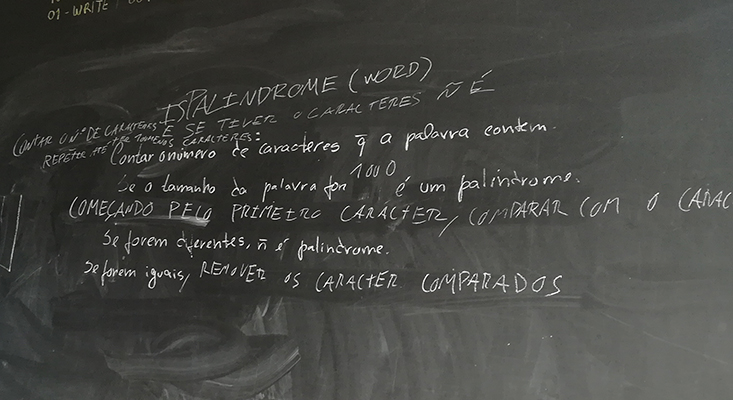 01-WRITE
ISPALINDROME (WORD)
E SE TIVER 0 CARACTERES Ñ É
CONTAR O Nº DE CARACTERES
REPETIR ATÉ TER CARACTERES:
Contar o número de caracteres q̃ a palavra contem.
Se o tamanho da palavra for 1 ou 0 é um palíndrome.
COMEÇANDO PELO PRIMEIRO CARÁCTER, COMPARAR COM O CARAC
Se forem diferentes, ñ é palíndrome.
Se forem iguais, REMOVER OS CARACTER COMPARADOS